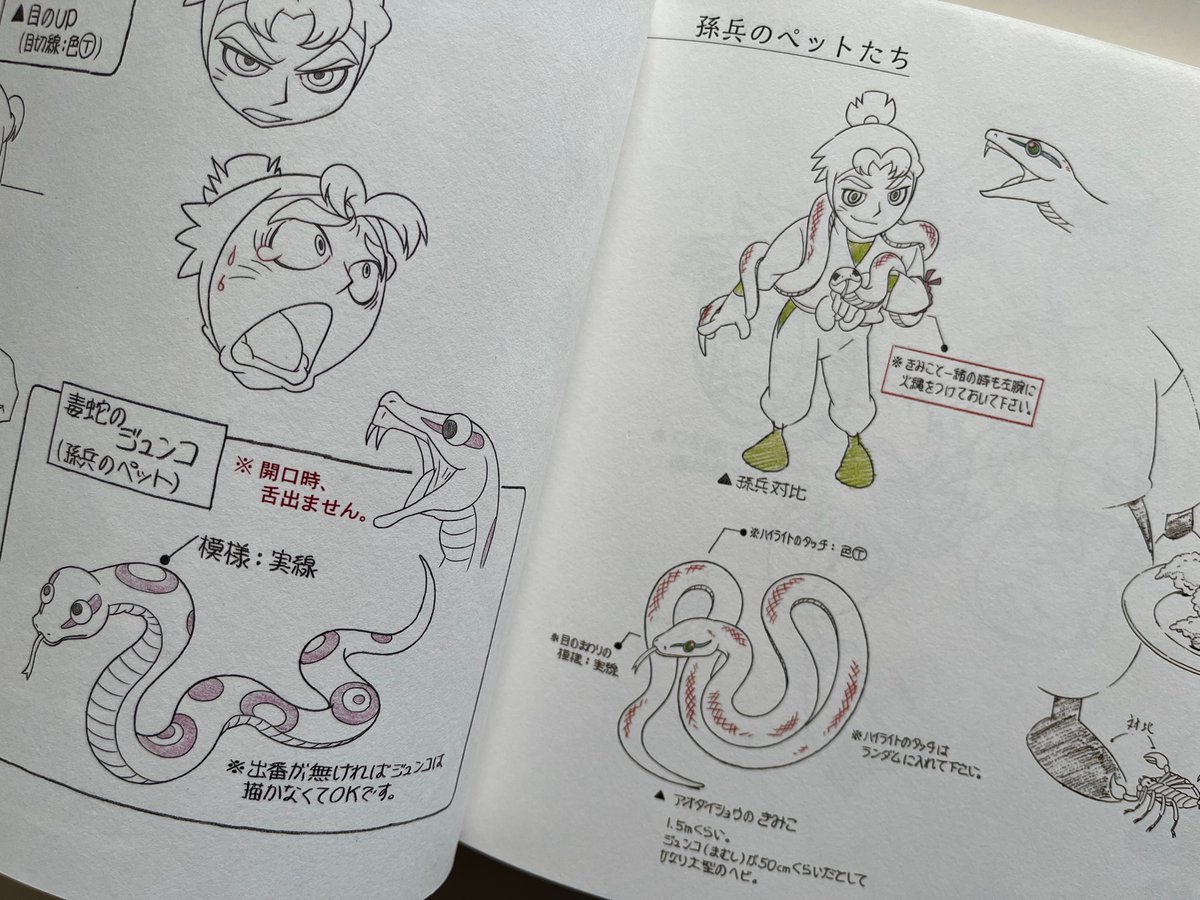 ▲目のUP
(目切線:色Ⓣ)
毒蛇の
ジュンコ
(孫兵のペット)
※開口時、
舌出ません。
模様:実線
※出番が無ければジュンコは
描かなくてOKです。
孫兵のペットたち
※きみこと一緒の時も左腕に
火縄をつけておいて下さい。
▲孫兵対比
※ハイライトのタッチ:色Ⓣ
※目のまわりの
模様:実線
※ハイライトのタッチは
ランダムに入れて下さい。
▲アオダイショウのきみこ
1.5mくらい。
ジュンコ(まむし)が50cmくらいだとして
かなり大型のヘビ。
対比